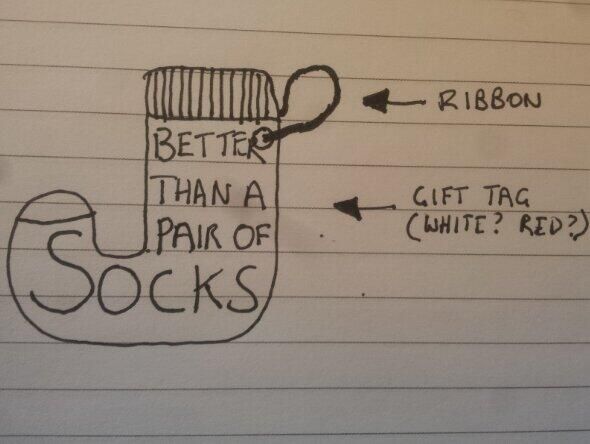 BETTER
THAN A
PAIR OF
SOCKS
RIBBON
GIFT TAG
(WHITE? RED?)